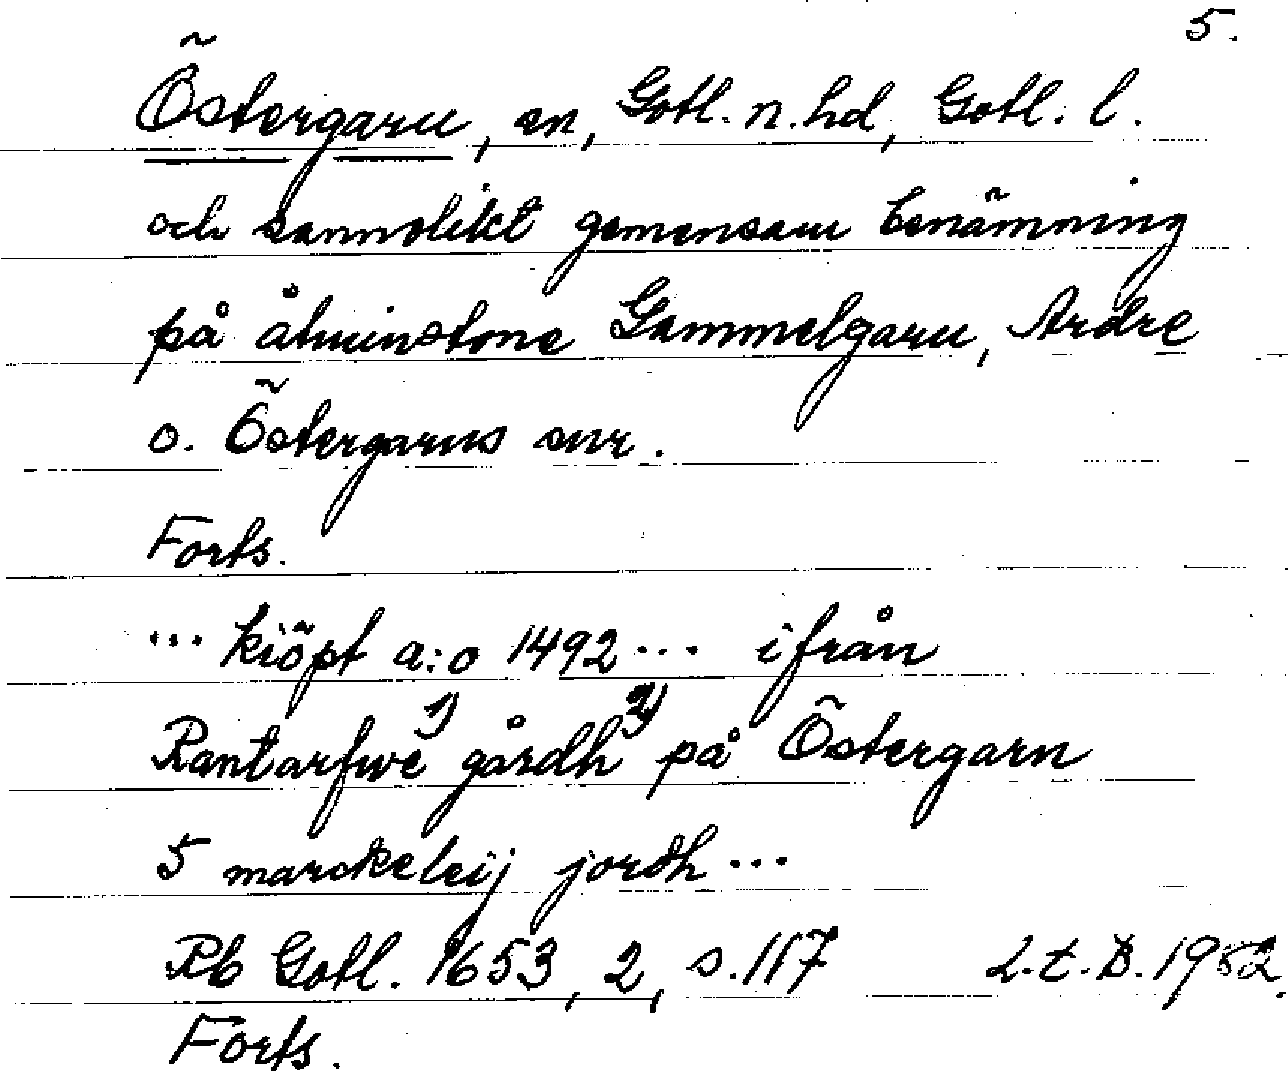 5.
Östergarn, sn, Gotl. n. hd, Gotl. l.
och sannolikt gemensam benämning
på åtminstone Gammelgarn, Ardre
o. Östergarns snr.
Forts.
... kiöpt a:o 1492 ... ifrån
Rantarfwe 1) gårdh 2) på Östergarn
5 marckeleij jordh ...
Rb Gotl. 1653, 2, s. 117 L.t.B. 1952.
Forts.